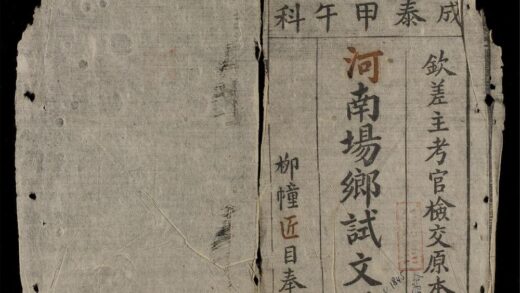 成泰甲午科
欽差主考官檢交原本
河南場鄉試文
柳幢近目奉